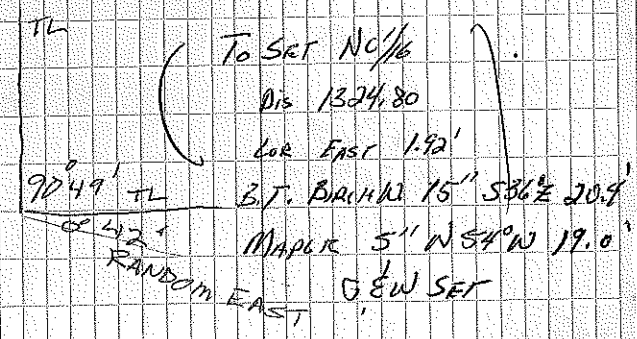 TL
To SET NC 1/16
Dis 1324.80
COR EAST 1.92'
90°49' TL
B.T. BIRCH W 15" S36°E 20.9'
0°42'
MAPLE 5" N54°W 19.0'
RANDOM EAST
SET